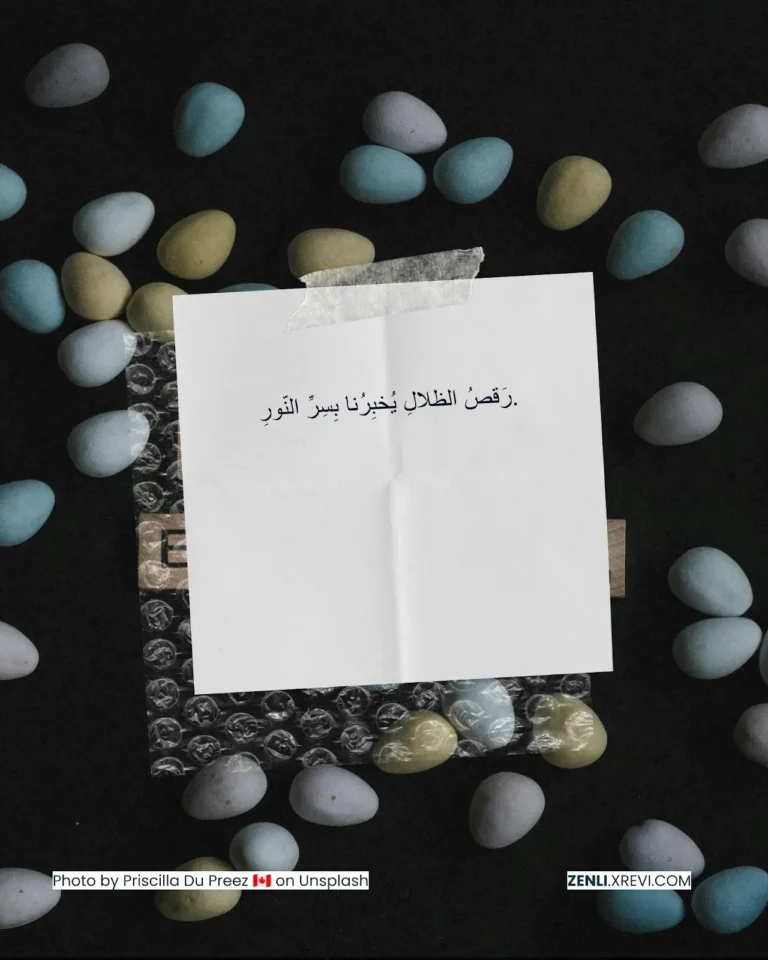 رَقصُ الظلالِ يُخبِرُنا بِسِرِّ النّورِ.
Photo by Priscilla Du Preez 🇨🇦 on Unsplash
ZENLI.XREVI.COM